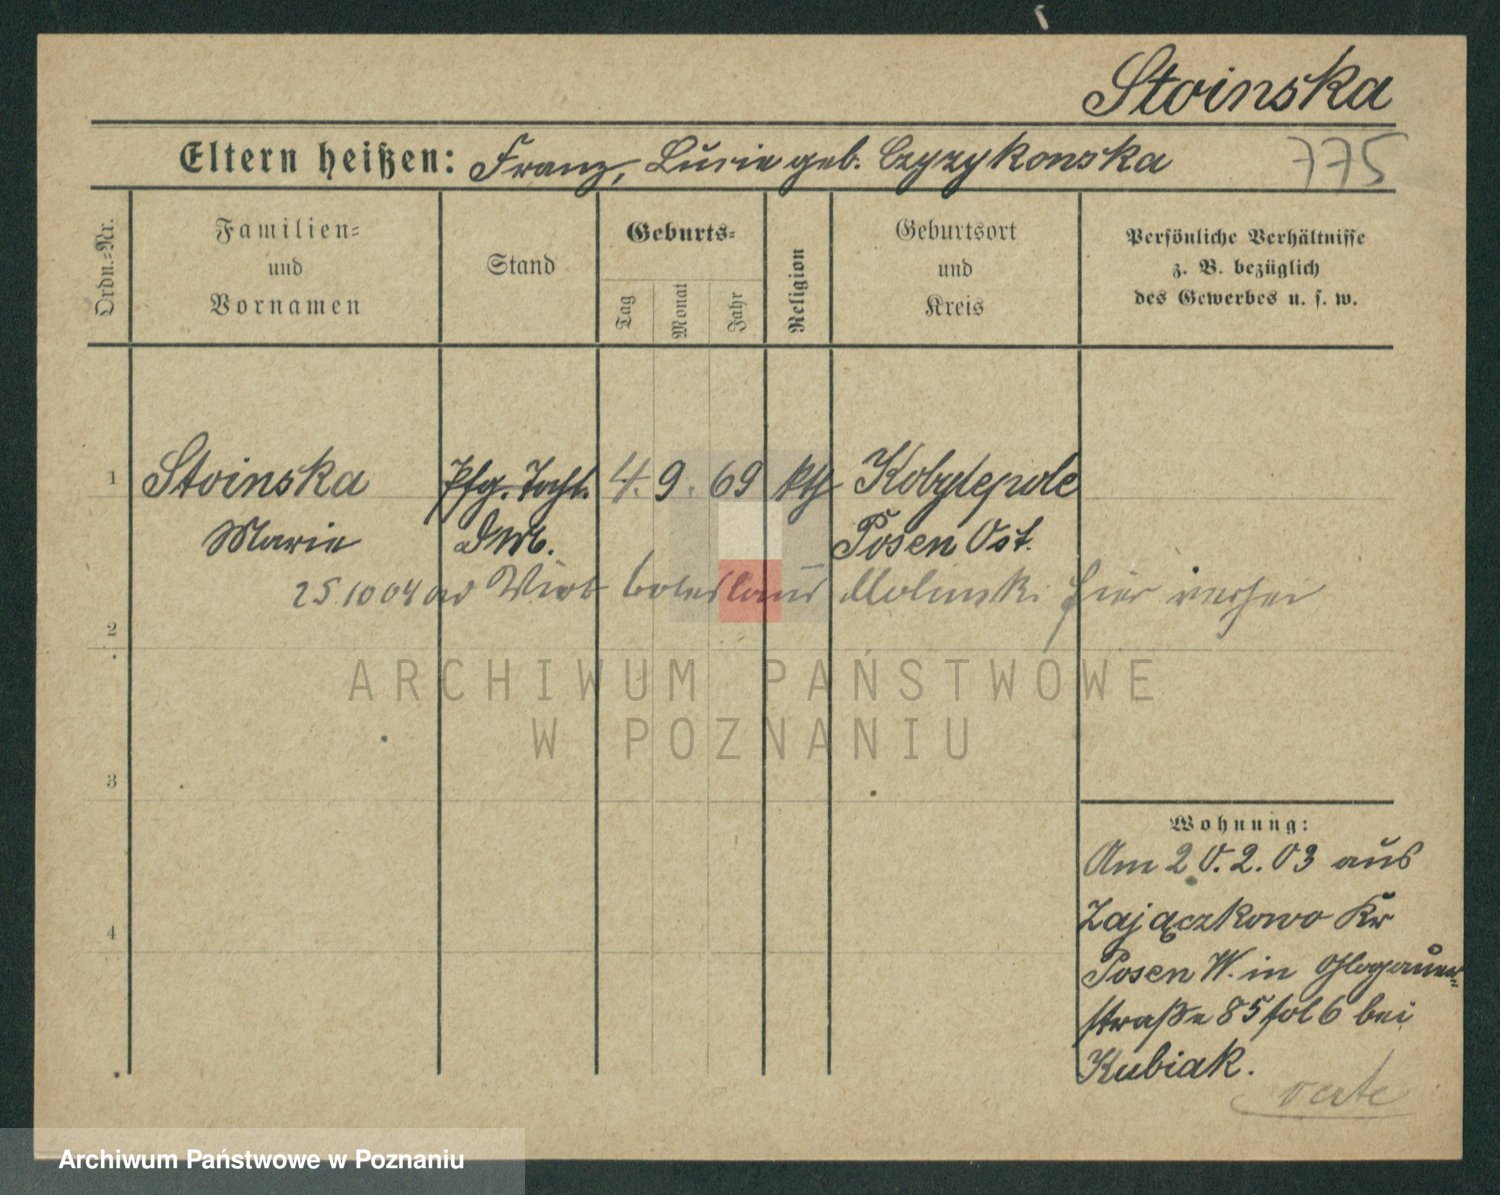 Stoinska
Eltern heißen: Franz, Lucie geb. Czyzykonska
775
Ordn.=Nr.
Familien=
und
Vornamen
Stand
Geburts=
Tag
Monat
Jahr
Religion
Geburtsort
und
Kreis
Persönliche Verhältnisse
z. B. bezüglich
des Gewerbes u. s. w.
1 Stoinska Pfg. Tocht. 4. 9. 69 kth Kobylepole
Marie Posen Ost.
25 10 04 Boleslaus Molinsk. hier
2
3
4
Wohnung:
Am 20. 2. 03 aus
Zajączkowo Kr
Posen W. in Glogauer=
straße 85 fol 6 bei
Kubiak.
verte
ARCHIWUM PAŃSTWOWE
W POZNANIU
Archiwum Państwowe w Poznaniu